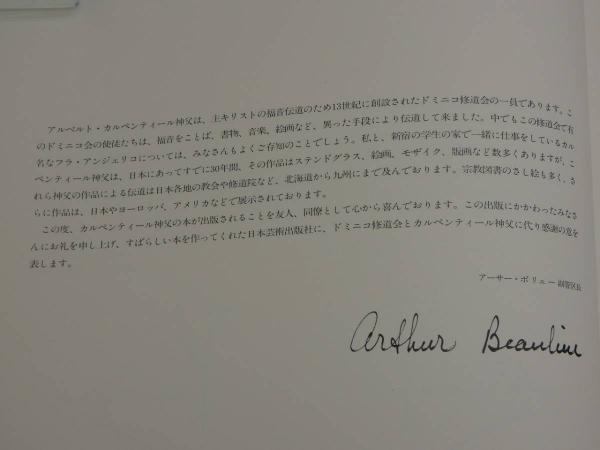 アルベルト・カルペンティール神父は、主キリストの福音伝道のため13世紀に創設されたドミニコ修道会の一員であります。こ
のドミニコ会の使徒たちは、福音をことば、書物、音楽、絵画など、異った手段により伝道して来ました。中でもこの修道会で有
名なフラ・アンジェリコについては、みなさんもよくご存知のことでしょう。私と、新宿の学生の家で一緒に仕事をしているカル
ペンティール神父は、日本にあってすでに30年間、その作品はステンドグラス、絵画、モザイク、版画など数多くありますが、こ
れら神父の作品による伝道は日本各地の教会や修道院など、北海道から九州にまで及んでおります。宗教図書のさし絵も多く、さ
らに作品は、日本やヨーロッパ、アメリカなどで展示されております。
この度、カルペンティール神父の本が出版されることを友人、同僚として心から喜んでおります。この出版にかかわったみなさ
んにお礼を申し上げ、すばらしい本を作ってくれた日本芸術出版社に、ドミニコ修道会とカルペンティール神父に代り感謝の意を
表します。
アーサー・ボリュー
Arthur Beaulieu